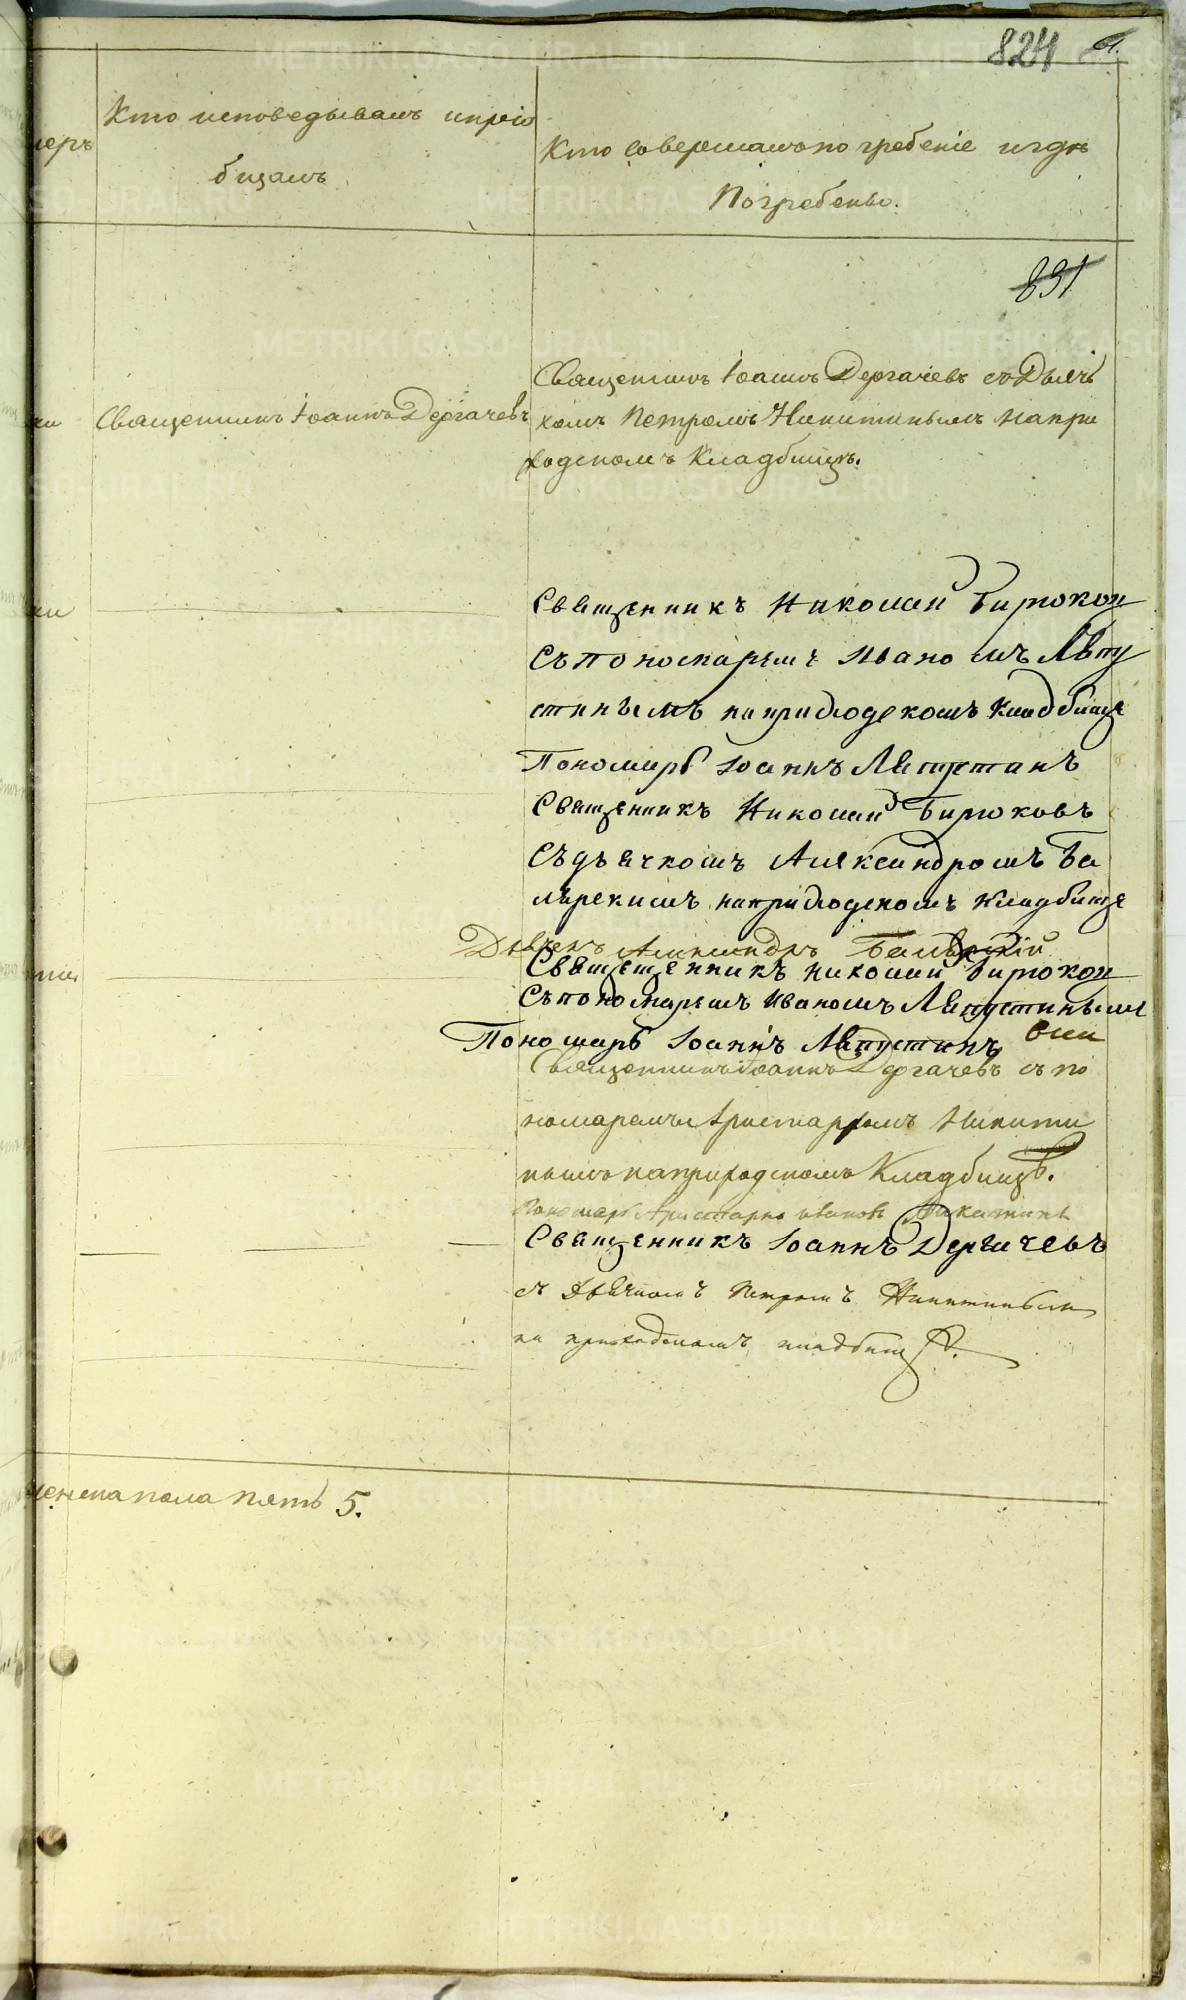 824
61.
меръ
Кто исповедывалъ и прiо
бщалъ
Кто совершалъ погребенiе и гдѣ
Погребены.
831
Священникъ Iоаннъ Дергачевъ
Священникъ Iоаннъ Дергачевъ съ Дьячь
комъ Петромъ Никитинымъ на при
ходскомъ Кладбищѣ.
Священникъ Николай Бирюков
съ пономаремъ Иваномъ Лапу
стинымъ на приходскомъ кладбище
Пономарь Iоаннъ Лапустинъ
Священникъ Николай Бирюковъ
съ дьячкомъ Александромъ Ба
на приходскомъ кладбище
Дьячекъ Александръ
Священникъ Николай Бирюков
съ пономаремъ Иваномъ Лапустинымъ
Пономарь Iоаннъ Лапустинъ
Священникъ Iоаннъ Дергачевъ съ по
номаремъ Аристархомъ Никити
нымъ на приходскомъ Кладбищѣ.
Пономарь Аристархъ Ивановъ Никитинъ
Священникъ Iоаннъ Дергачевъ
съ Дьячкомъ Петромъ Никитинымъ
на приходскомъ кладбищѣ.
женска пола пять 5.
METRIKI.GASO-URAL.RU